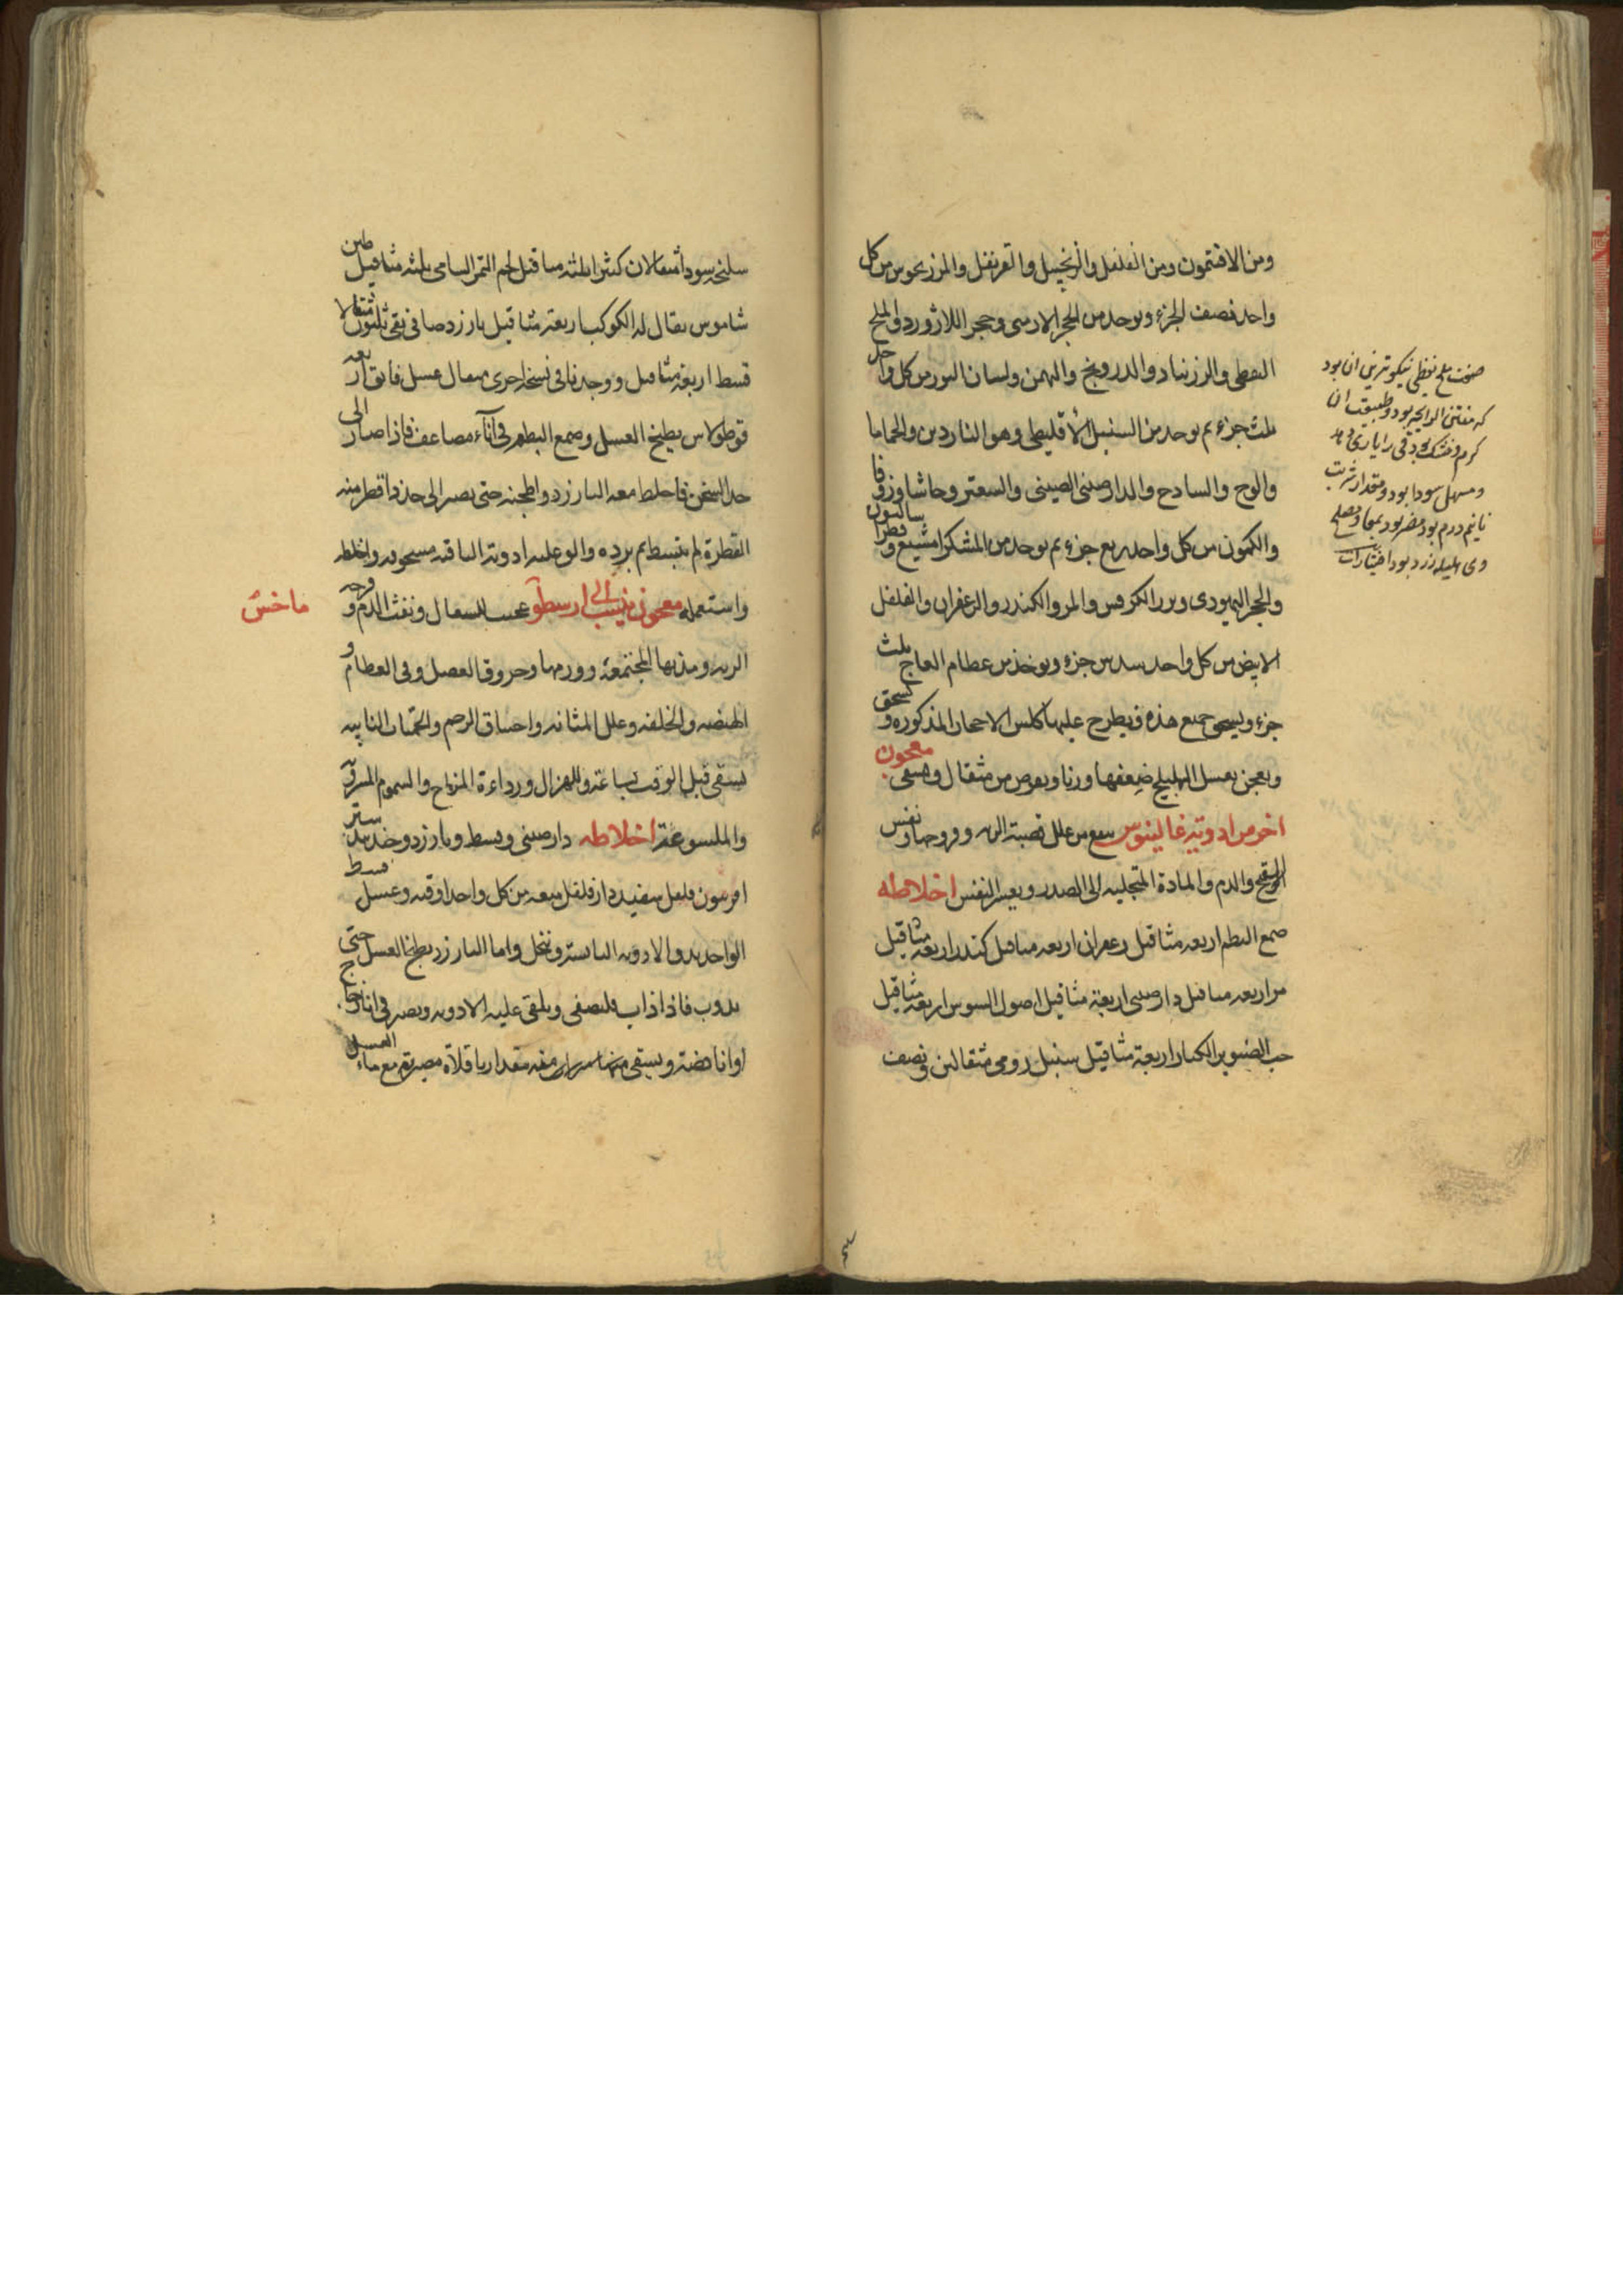 ومن الافتيمون ومن الفلفل والزنجبيل والقرنفل والمرزنجوش من كل
واحد نصف الجزء ويوخذ من الحجر الارمنى وحجر اللازورد والملح
النفطى والزرنباد والدرونج والبهمن ولسان الثور من كل واحد
ثلث جزء ثم يوخذ من السنبل الاقليطى وهو الناردين والحماما
والوج والسادج والدارصينى الصينى والسعتر وحاشا وزوفا
والكمون من كل واحد ربع جزء ثم يوخذ من المشكرامشيع وفطراساليون
والحجر اليهودى وبزر الكرفس والمر والكندر والزعفران والفلفل
الابيض من كل واحد سدس جزء ويوخذ من عظام العاج ثلث
جزء ويسحق جميع هذه ويطرح عليها كلس الاحجار المذكوره ويسحق
ويعجن بعسل الهليلج ضعفها وزنا ويقرص من مثقال ويسقى معجون
اخر من ادوية غالينوس ينفع من علل قصبة الريه وقروحها ونفس
القيح والدم والمادة المتجلبه الى الصدر وبعسر النفس اخلاطه
صمغ البطم اربعه مثاقيل زعفران اربعه مثاقيل كندر اربعه مثاقيل
مر اربعه مثاقيل دارصينى اربعة مثاقيل اصول السوس اربعة مثاقيل
حب الصنوبر الكبار اربعة مثاقيل سنبل رومى مثقالين ونصف
صفت ملح نفطى نيكوترين ان بود
كه منتن الرايحه بود وطبيعت ان
كرم وخشك بود قى را يارى دهد
ومسهل سودا بود ومقدار شربت
تا نيم درم بود مضر بود بمعا ومصلح
وى هليله زرد بود اختيارات
سليخه سودا مثقالان كثيرا ثلثه مثاقيل لحم التمر الشامى ثلثه مثاقيل طين
شاموس يقال له الكوكب اربعة مثاقيل بارزد صافى نقى ثلثون مثقالا
قسط اربعة مثاقيل ووجدنا فى نسخة اخرى مثقال عسل فايق اربعه
قوطولاس يطبخ العسل وصمغ البطم فى آناء مضاعف فاذا صار الى
حد الثخن فاخلط معه البارزد واطبخه حتى يصير الى حد اذا قطر منه
القطرة لم تنبسط ثم برده والق عليه ادويته الباقيه مسحوقه واخلطه
واستعمله معجون ينسب الى ارسطو عجيب للسعال ونفث الدم وقرحه
ماخش
الريه ومدتها المجتمعة وورمها وخروق العصل وفى العظام و
الهيضه والخلفه وعلل المثانه واختناق الرحم والحميات النايبه
يسقى قبل الوقت بساعة وللهزال ورداءة المزاج والسموم المشروبة
والملسوعة اخلاطه دارصينى وقسط وبارزد وجندبيدستر
افربيون فلفل سفيد دارفلفل ميعه من كل واحد اوقيه وعسل قسط
الواحد يدق الادويه اليابسة وتنخل واما البارزد يطبخ العسل حتى
يذوب فاذا ذاب فليصفى ويلقى عليه الادويه ويصير فى انا زجاج
او انا فضة ويسقى منها مقدار باقلاة مصرية مع ماء العسل